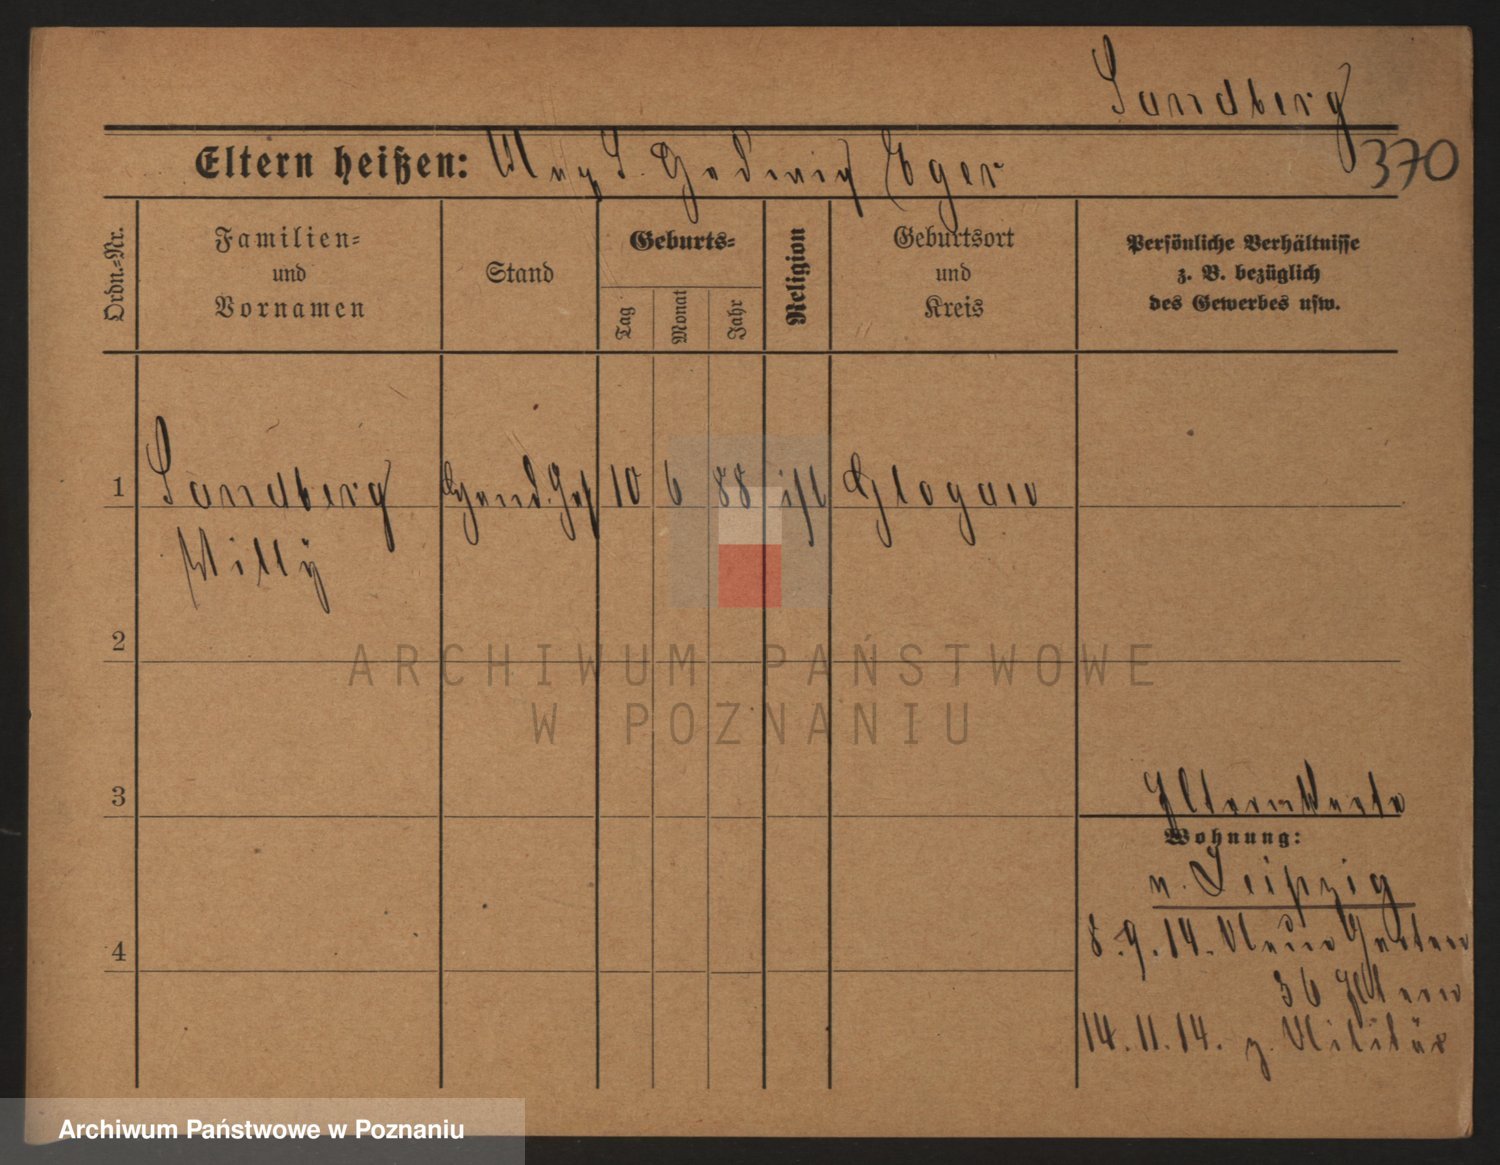 Sandberg
370
Eltern heißen: S. Hedwig Eger
Ordn.=Nr.
Familien=
und
Vornamen
Stand
Geburts=
Tag
Monat
Jahr
Religion
Geburtsort
und
Kreis
Persönliche Verhältnisse
z. B. bezüglich
des Gewerbes usw.
1 Sandberg 10 6 88 isl Glogau
Willy
2
3
4
Wohnung:
n. Leipzig
8.9.14. Neue Garten
36 Eltern
14.11.14. z. Militär
ARCHIWUM PAŃSTWOWE
W POZNANIU
Archiwum Państwowe w Poznaniu